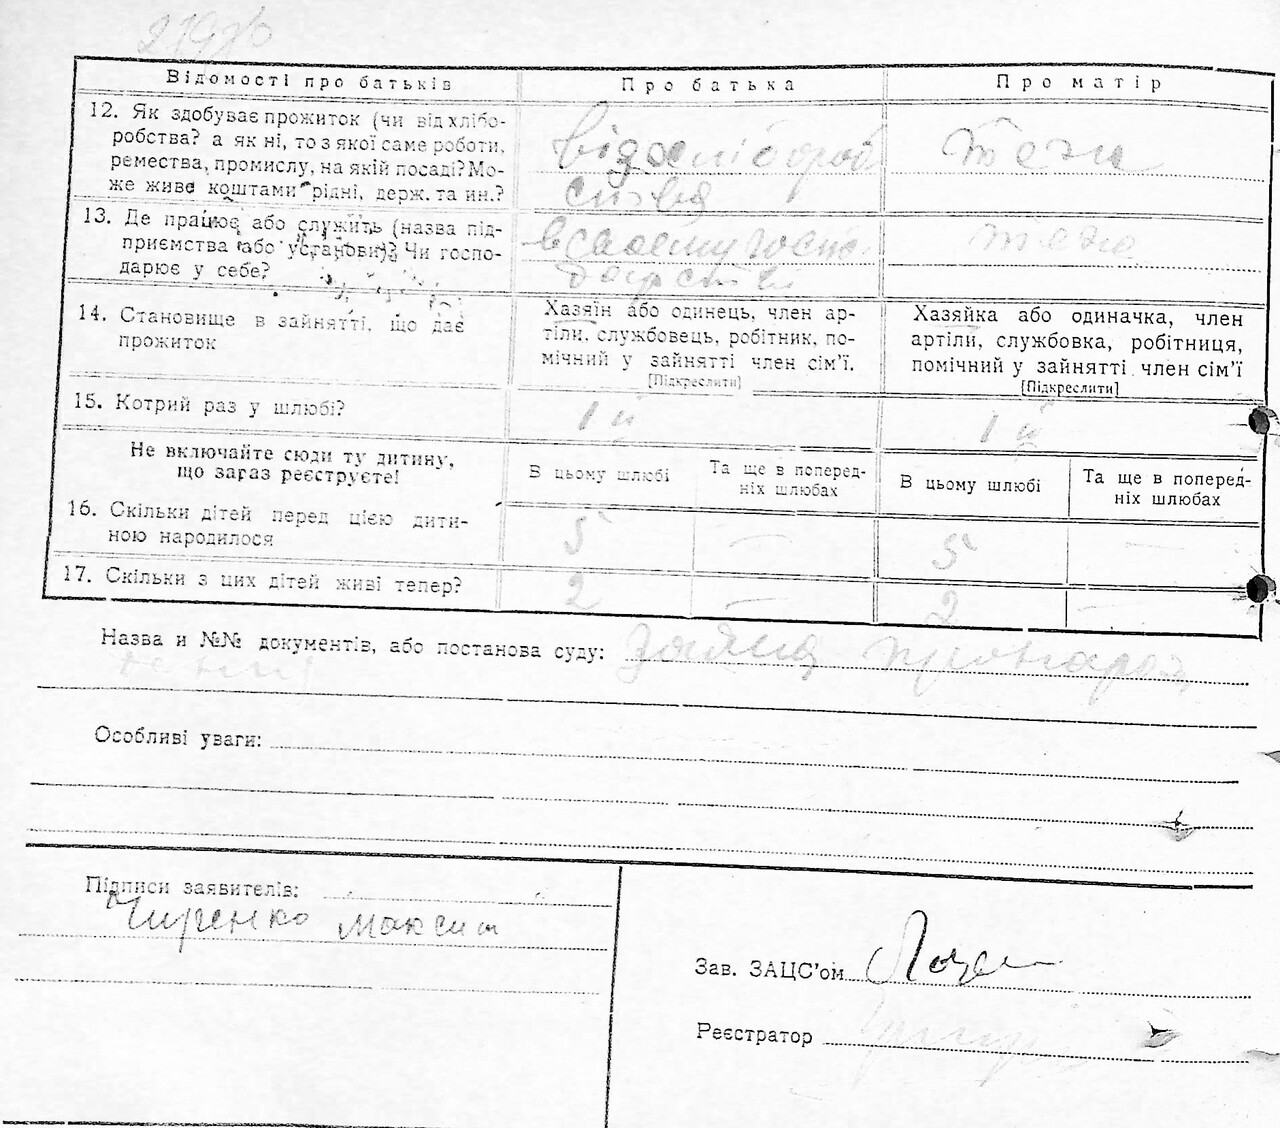 Відомості про батьків Про батька Про матір
12. Як здобуває прожиток (чи від хлібо-
робства? а як ні, то з якої саме роботи,
ремества, промислу, на якій посаді? Мо-
же живе коштами рідні, держ. та ин.?
від хлібороб
ства
теж
13. Де працює або служить (назва під-
приємства або установи)? Чи госпо-
дарює у себе?
в своєму госп
дарстві
теж
14. Становище в зайнятті, що дає
прожиток
Хазяїн або одинець, член ар-
тіли, службовець, робітник, по-
мічний у зайнятті член сім'ї.
[Підкреслити]
Хазяйка або одиначка, член
артіли, службовка, робітниця,
помічний у зайнятті член сім'ї
[Підкреслити]
15. Котрий раз у шлюбі? 1й 1й
Не включайте сюди ту дитину,
що зараз реєструєте!
В цьому шлюбі
Та ще в поперед-
ніх шлюбах
В цьому шлюбі
Та ще в поперед-
ніх шлюбах
16. Скільки дітей перед цією дити-
ною народилося
5 — 5 —
17. Скільки з цих дітей живі тепер? 2 — 2 —
Назва и №№ документів, або постанова суду: заява про народ
ження
Особливі уваги:
Підписи заявителів:
Максим
Зав. ЗАЦС'ом
Реєстратор